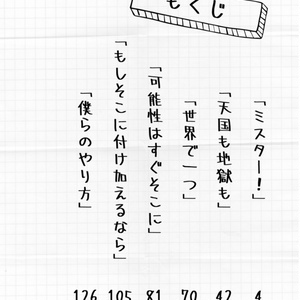 もくじ
「ミスター！」 4
「天国も地獄も」 42
「世界で一つ」 70
「可能性はすぐそこに」 81
「もしそこに付け加えるなら」 105
「僕らのやり方」 126